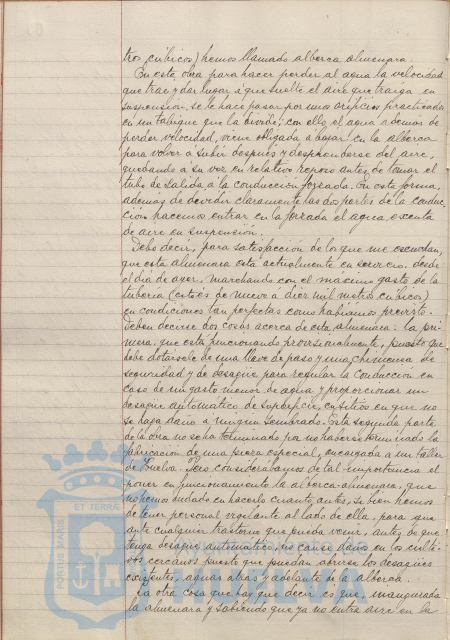 tros cúbicos) hemos llamado alberca almenara.
En esta obra para hacer perder al agua la velocidad
que trae y dar lugar á que suelte el aire que traiga en
suspensión se le hace pasar por unos orificios practicados
en un tabique que la divide; con ello, el agua ademas de
perder velocidad, viene obligada a bajar en la alberca
para volver a subir después y desprenderse del aire,
quedando a su vez en relativo reposo antes de tomar el
tubo de salida a la conducción forzada. En esta forma,
además de dividir claramente las dos partes de la conduc-
ción hacemos entrar en la forzada el agua exenta
de aire en suspensión.
Debo decir, para satisfacción de los que me escuchan,
que esta almenara está actualmente en servicio, desde
el dia de ayer, marchando con el máximo gasto de la
tubería (esto es de nueve a diez mil metros cúbicos)
en condiciones tan perfectas como habíamos previsto.
Deben decirse dos cosas acerca de esta almenara: la pri-
mera, que está funcionando provisionalmente, puesto que
debe dotársele de una llave de paso y una chimenea de
seguridad y de desagüe para regular la conducción en
caso de un gasto menor de agua y proporcionar un
desagüe automático de superficie, en sitios en que no
se haga daño a ningún sembrado. Esta segunda parte
de la obra no se ha terminado por no haberse terminado la
fabricación de una pieza especial, encargada a un taller
de Huelva. Pero considerábamos de tal importancia el
poner en funcionamiento la alberca-almenara, que
no hemos dudado en hacerlo cuanto antes, si bien hemos
de tener personal vigilante al lado de ella, para que
ante cualquier trastorno que pueda venir, antes de que
tenga desagüe automático, no cause daños en los culti-
vos cercanos puesto que puedan abrirse los desagües
existentes, aguas atras y adelante de la alberca.
La otra cosa que hay que decir es que, inaugurada
la almenara y sabiendo que ya no entra aire en la
PORTUS MARIS ET TERRAE